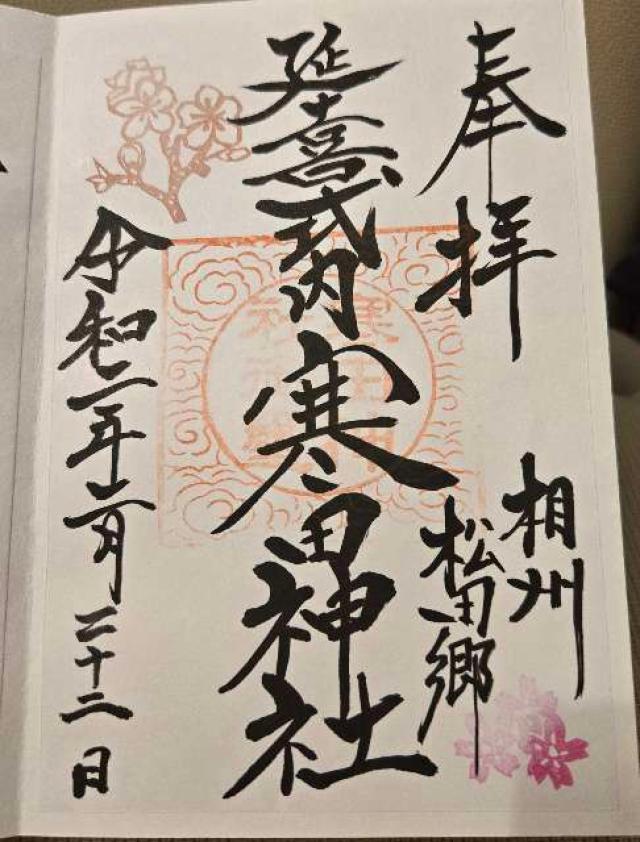 奉拝
相州
松田郷
延喜式内寒田神社
令和二年二月二十二日